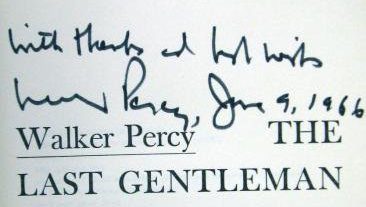 with thanks and best wishes
Walker Percy, June 9, 1966
Walker Percy THE
LAST GENTLEMAN